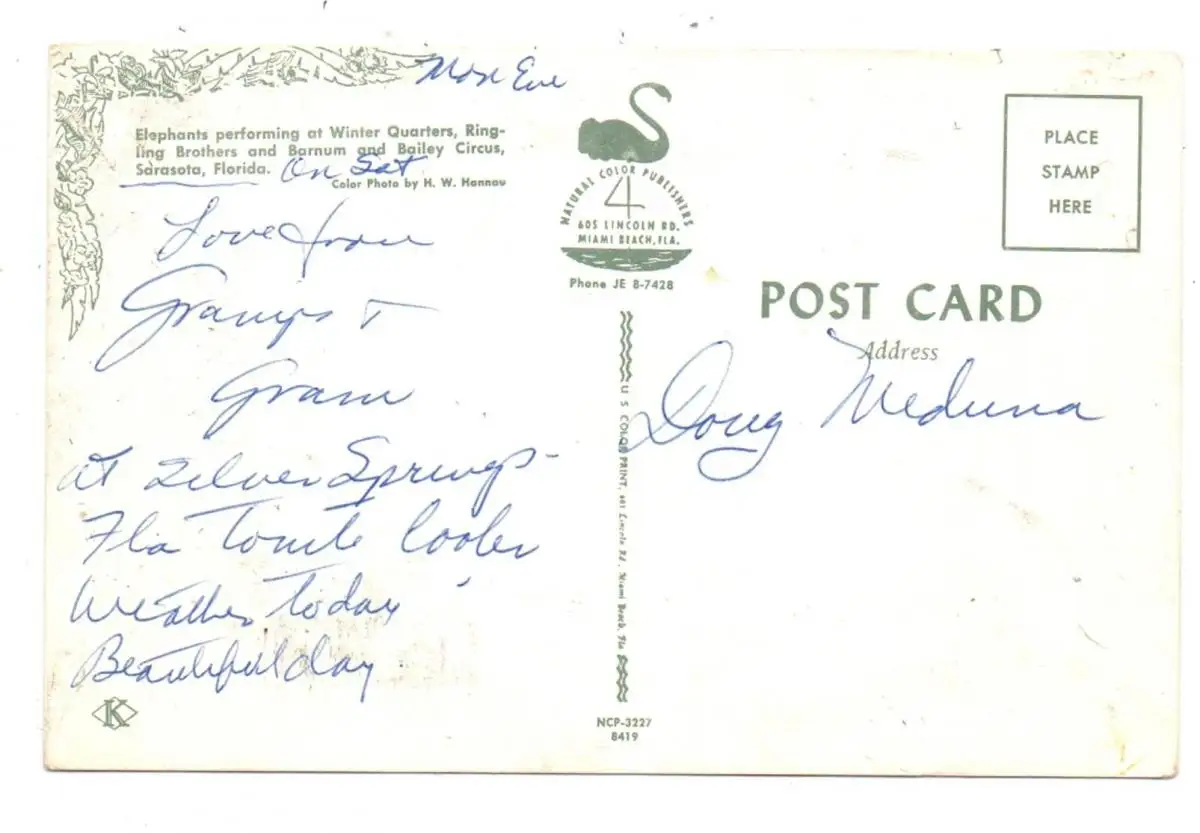 Mon Eve
Elephants performing at Winter Quarters, Ring-
ling Brothers and Barnum and Bailey Circus,
Sarasota, Florida. On Sat
Color Photo by H. W. Hannau
Love from
Gramps +
Gram
at Silver Springs-
Fla Tonite Cooler
Weather Today
Beautiful day
K
NATURAL COLOR PUBLISHERS
4
605 LINCOLN RD.
MIAMI BEACH, FLA.
Phone JE 8-7428
U S COLOR PRINT, 601 Lincoln Rd. Miami Beach, Fla
NCP-3227
8419
PLACE
STAMP
HERE
POST CARD
Address
Doug Meduna